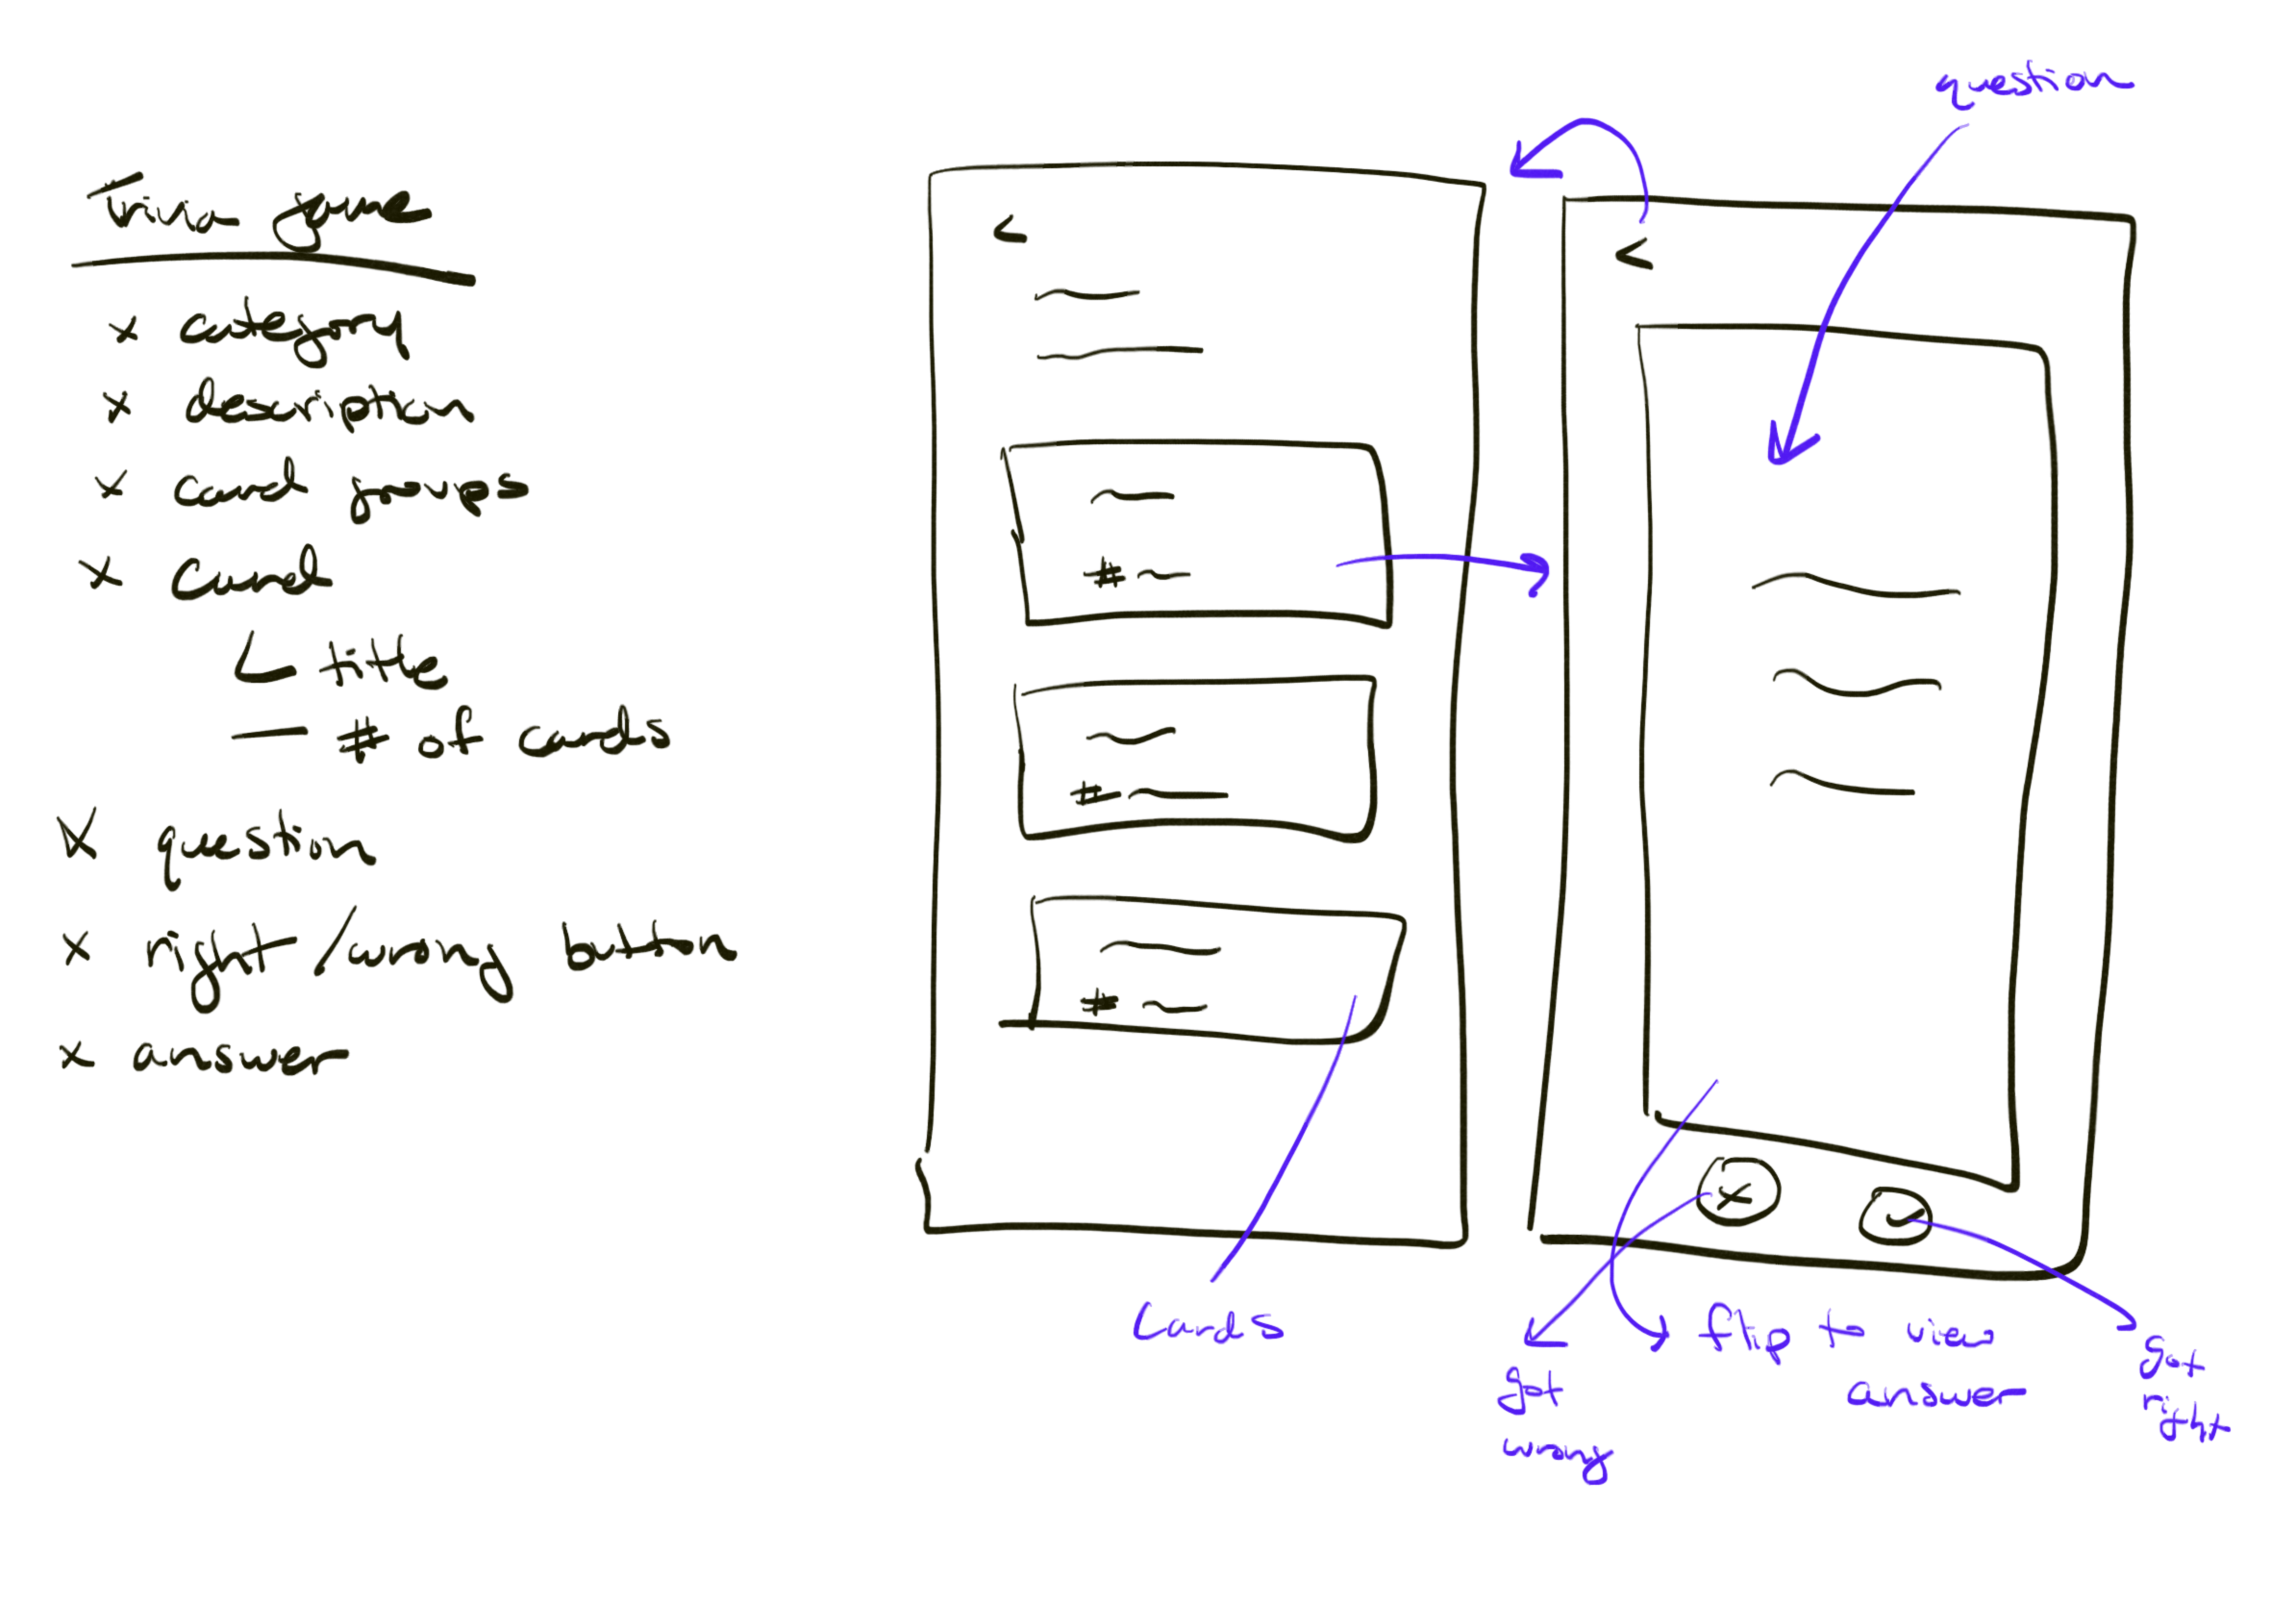 Trivia game
x category
x description
x card groups
x Card
title
# of cards
x question
x right/wrong button
x answer
<
#
#
#
Cards
question
<
x
got
wrong
flip to view
answer
got
right